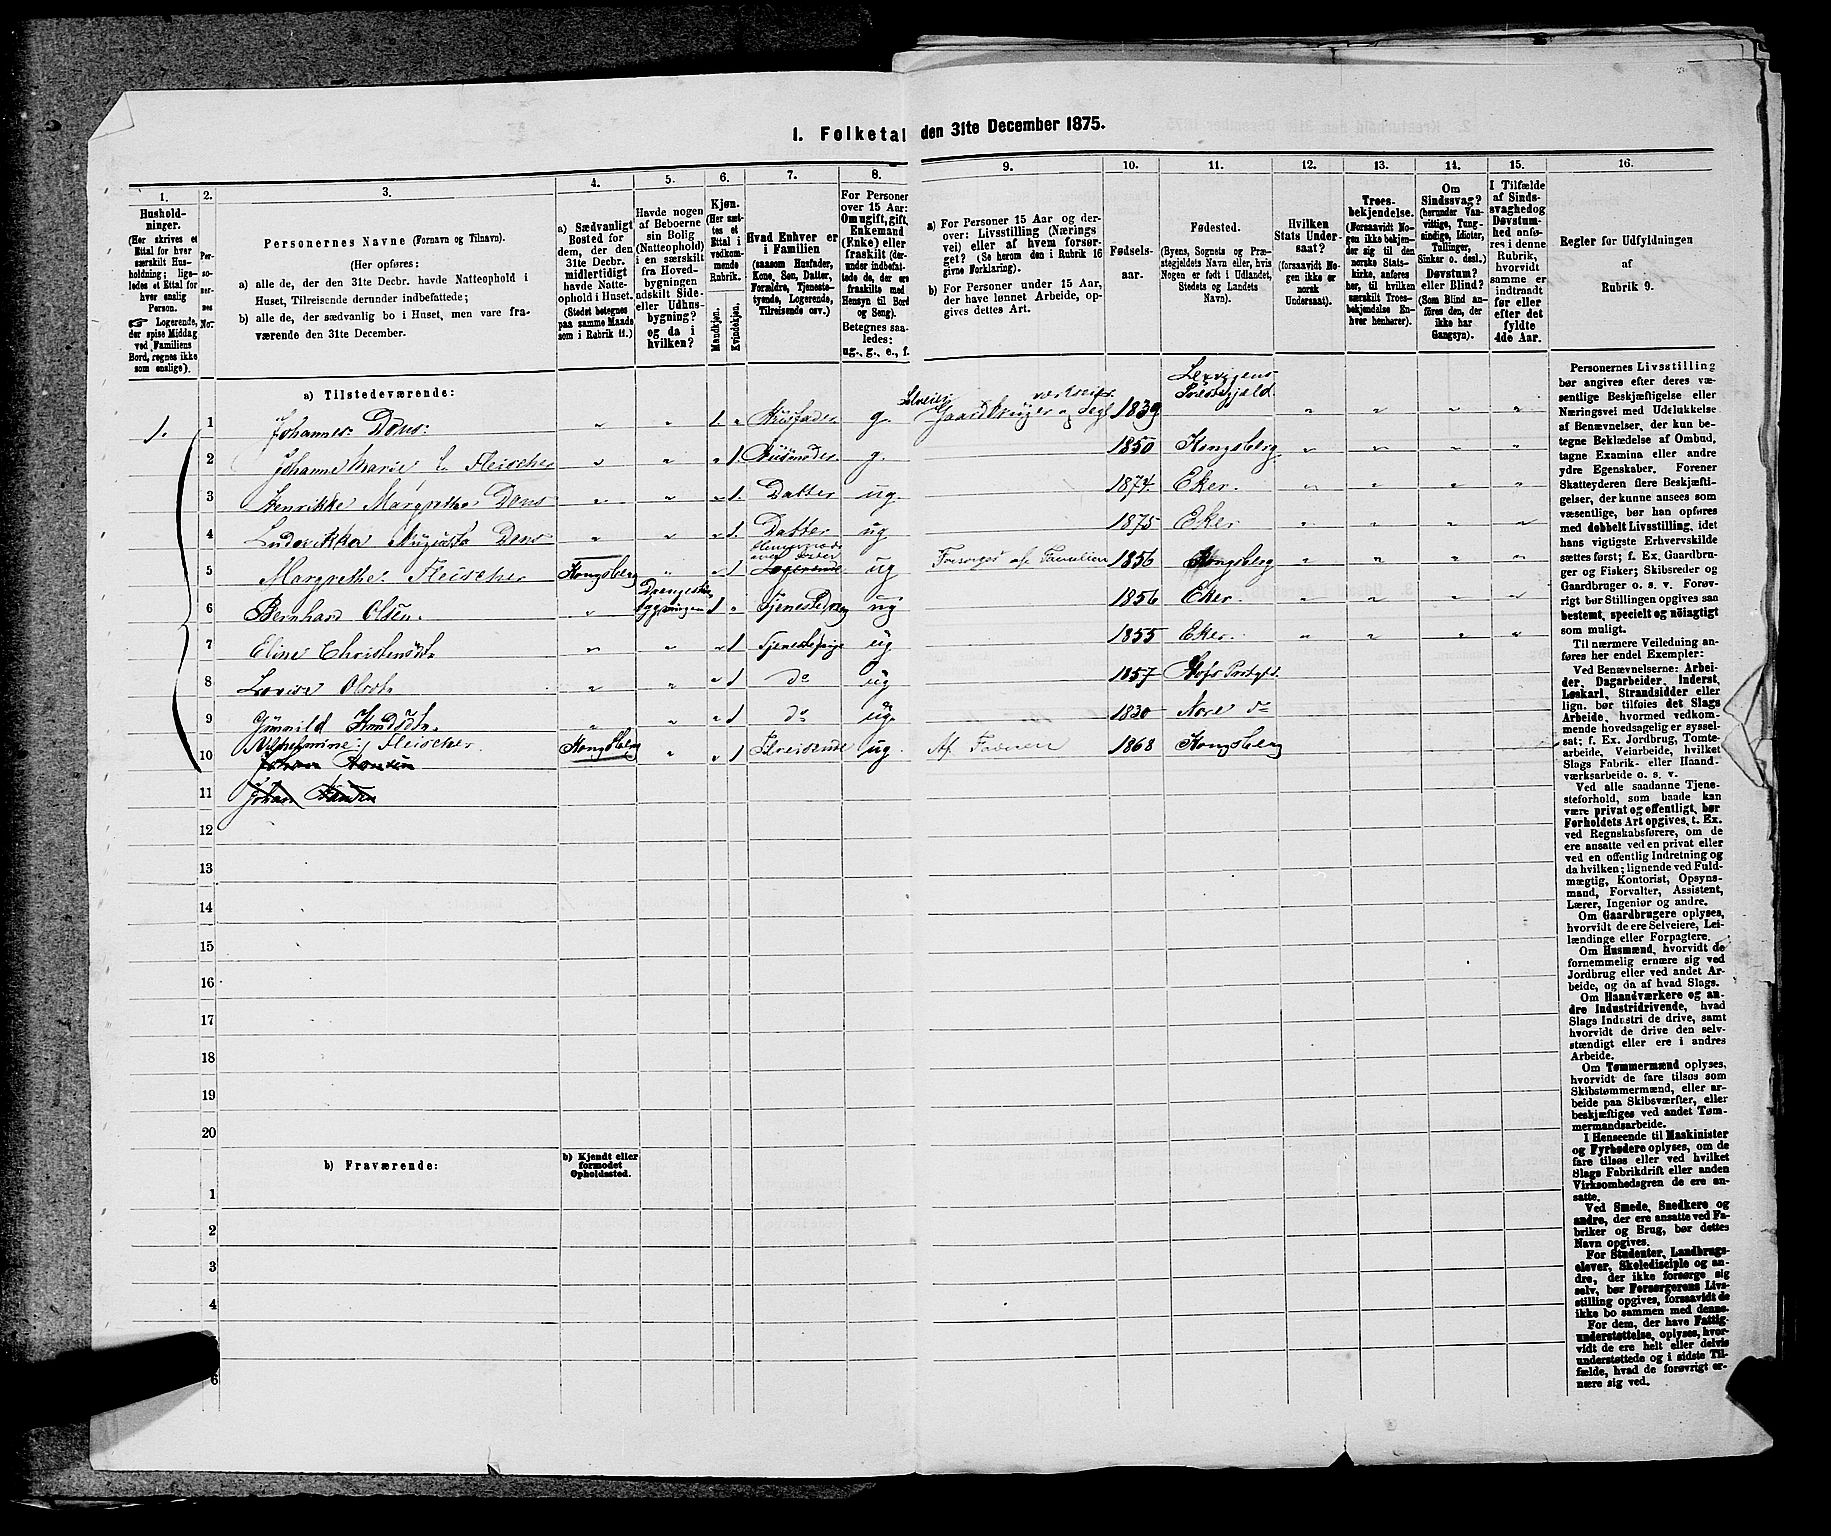 1. Folketal den 31te December 1875.
1.
Hushold-
ninger.
(Her skrives et
Ettal for hver
særskilt Hus-
holdning; lige-
ledes et Ettal for
hver enslig
Person.
☞ Logerende,
der spise Middag
ved Familiens
Bord, regnes ikke
som enslige).
2.
Per-
so-
ner-
nes
No.
3.
Personernes Navne (Fornavn og Tilnavn).
(Her opføres:
a) alle de, der den 31te Decbr. havde Natteophold i
Huset, Tilreisende derunder indbefattede;
b) alle de, der sædvanlig bo i Huset, men vare fra-
værende den 31te December.
4.
a) Sædvanligt
Bosted for
dem, der den
31te Decbr.
midlertidigt
havde Natte-
ophold i Huset.
(Stedet betegnes
paa samme Maade
som i Rubrik 11.)
5.
Havde nogen
af Beboerne
sin Bolig
(Natteophold)
i en særskilt
fra Hoved-
bygningen
adskilt Side-
eller Udhus-
bygning?
og da i
hvilken?
6.
Kjøn.
(Her sæt-
tes et
Ettal i
vedkom-
mende
Rubrik.
Mandkjøn.
Kvindekjøn.
7.
Hvad Enhver er
i Familien
(saasom Husfader,
Kone, Søn, Datter,
Forældre, Tjeneste-
tyende, Logerende,
Tilreisende osv.)
8.
For Personer
over 15 Aar:
Om ugift, gift,
Enkemand
(Enke) eller
fraskilt (der-
under indbefat-
tede de, der ere
fraskilte med
Hensyn til Bord
og Seng).
Betegnes saa-
ledes:
ug., g., e., f.
9.
a) For Personer 15 Aar og der-
over: Livsstilling (Nærings
vei) eller af hvem forsør-
get? (Se herom den i Rubrik 16
givne Forklaring).
b) For Personer under 15 Aar,
der have lønnet Arbeide, op-
gives dettes Art.
10.
Fødsels-
aar.
11.
Fødested.
(Byens, Sognets og Præ-
stegjeldets Navn eller, hvis
Nogen er født i Udlandet,
Stedets og Landets
Navn).
12.
Hvilken
Stats Under-
saat?
(forsaavidt No-
gen ikke er
norsk
Undersaat).
13.
Troes-
bekjendelse.
(Forsaavidt No-
gen ikke bekjen-
der sig til den
norske Stats-
kirke, anføres
her, til hvilken
særskilt Troes-
bekjendelse En-
hver henhører).
14.
Om
Sindssvag?
(herunder Van-
vittige, Tung-
sindige, Idioter,
Tullinger,
Sinker o. desl.)
Døvstum?
eller Blind?
(Som Blind an-
føres den, der
ikke har
Gangsyn).
15.
I Tilfælde
af Sinds-
svaghed og
Døvstum-
hed anfø-
res i denne
Rubrik,
hvorvidt
samme er
indtraadt
før eller
efter det
fyldte
4de Aar.
16.
Regler for Udfyldningen
af
Rubrik 9.
a) Tilstedeværende:
1. 1 Johannes Dons: „ „ 1. „ Husfader g. Selveier Gaardbruger og Sag- 1839 Præstegjeld „ „ „ „
2 Johanne Marie f. Fleischer „ „ „ 1. Husmoder g. 1850 Kongsberg „ „ „ „
3 Henrikke Margrethe Dons „ „ „ 1. Datter ug. 1874. Eker. „ „ „ „
4 Ludovikka Augusta Dons „ „ „ 1. Datter ug 1875 Eker. „ „ „ „
5 Margrethe Fleischer Kongsberg „ „ 1 Logerende ug Forsørges af Familien 1856 Kongsberg „ „ „ „
6 Bernhard Olsen. „ 1 „ Tjenestedreng ug 1856 Eker. „ „ „ „
7 Eline Christensdt „ „ „ 1 Tjenestepige ug 1855 Eker. „ „ „ „
8 Lovise Olsdt „ „ „ 1 do ug 1857
9 Gunnild Knudsdt. „ „ „ 1 do ug. 1830 Nore do
10 Vilhelmine Fleischer. Kongsberg „ „ 1 Tilreisende ug. Af Faderen 1868 Kongsberg
Johan Hansen
11 Johan Hansen
12
13
14
15
16
17
18
19
20
b) Fraværende:
b) Kjendt eller
formodet
Opholdssted.
1
2
3
4
5
6
Personernes Livsstilling
bør angives efter deres væ-
sentlige Beskjæftigelse eller
Næringsvei med Udelukkelse
af Benævnelser, der kun be-
tegne Beklædelse af Ombud,
tagne Examina eller andre
ydre Egenskaber. Forener
Skatteyderen flere Beskjæfti-
gelser, der kunne ansees som
væsentlige, bør han opføres
med dobbelt Livsstilling, idet
hans vigtigste Erhvervskilde
sættes først; f. Ex. Gaardbru-
ger og Fisker; Skibsreder og
Gaardbruger o. s. v. Forøv-
rigt bør Stillingen opgives saa
bestemt, specielt og nøiagtigt
som muligt.
Til nærmere Veiledning an-
føres her endel Exempler:
Ved Benævnelserne: Arbei-
der, Dagarbeider, Inderst,
Løskarl, Strandsidder eller
lign. bør tilføies det Slags
Arbeide, hvormed vedkom-
mende hovedsagelig er syssel-
sat; f. Ex. Jordbrug, Tomte-
arbeide, Veiarbeide, hvilket
Slags Fabrik- eller Haand-
værksarbeide o. s. v.
Ved alle saadanne Tjene-
steforhold, som baade kan
være privat og offentligt, bør
Forholdets Art opgives, t. Ex.
ved Regnskabsførere, om de
ere ansatte ved en privat eller
ved en offentlig Indretning og
da hvilken; lignende ved Fuld-
mægtig, Kontorist, Opsyns-
mand, Forvalter, Assistent,
Lærer, Ingeniør og andre.
Om Gaardbrugere oplyses,
hvorvidt de ere Selveiere, Lei-
lændinge eller Forpagtere.
Om Husmænd, hvorvidt de
fornemmelig ernære sig ved
Jordbrug eller ved andet Ar-
beide, og da af hvad Slags.
Om Haandværkere og an-
dre Industridrivende, hvad
Slags Industri de drive, samt
hvorvidt de drive den selv-
stændigt eller ere i andres
Arbeide.
Om Tømmermænd oplyses,
hvorvidt de fare tilsøs som
Skibstømmermænd, eller ar-
beide paa Skibsværfter, eller
beskjæftiges ved andet Tøm-
mermandsarbeide.
I Henseende til Maskinister
og Fyrbødere oplyses, om de
fare tilsøs eller ved hvilket
Slags Fabrikdrift eller anden
Virksomhedsgren de ere an-
satte.
Ved Smede, Snedkere og
andre, der ere ansatte ved Fa-
briker og Brug, bør dettes
Navn opgives.
For Studenter, Landbrugs-
elever, Skoledisciple og an-
dre, der ikke forsørge sig
selv, bør Forsørgerens Livs-
stilling opgives, forsaavidt de
ikke bo sammen med denne.
For dem, der have Fattig-
understøttelse, oplyses, hvor-
vidt de ere helt eller delvis
understøttede og i sidste Til-
fælde, hvad de forøvrigt er-
nære sig ved.